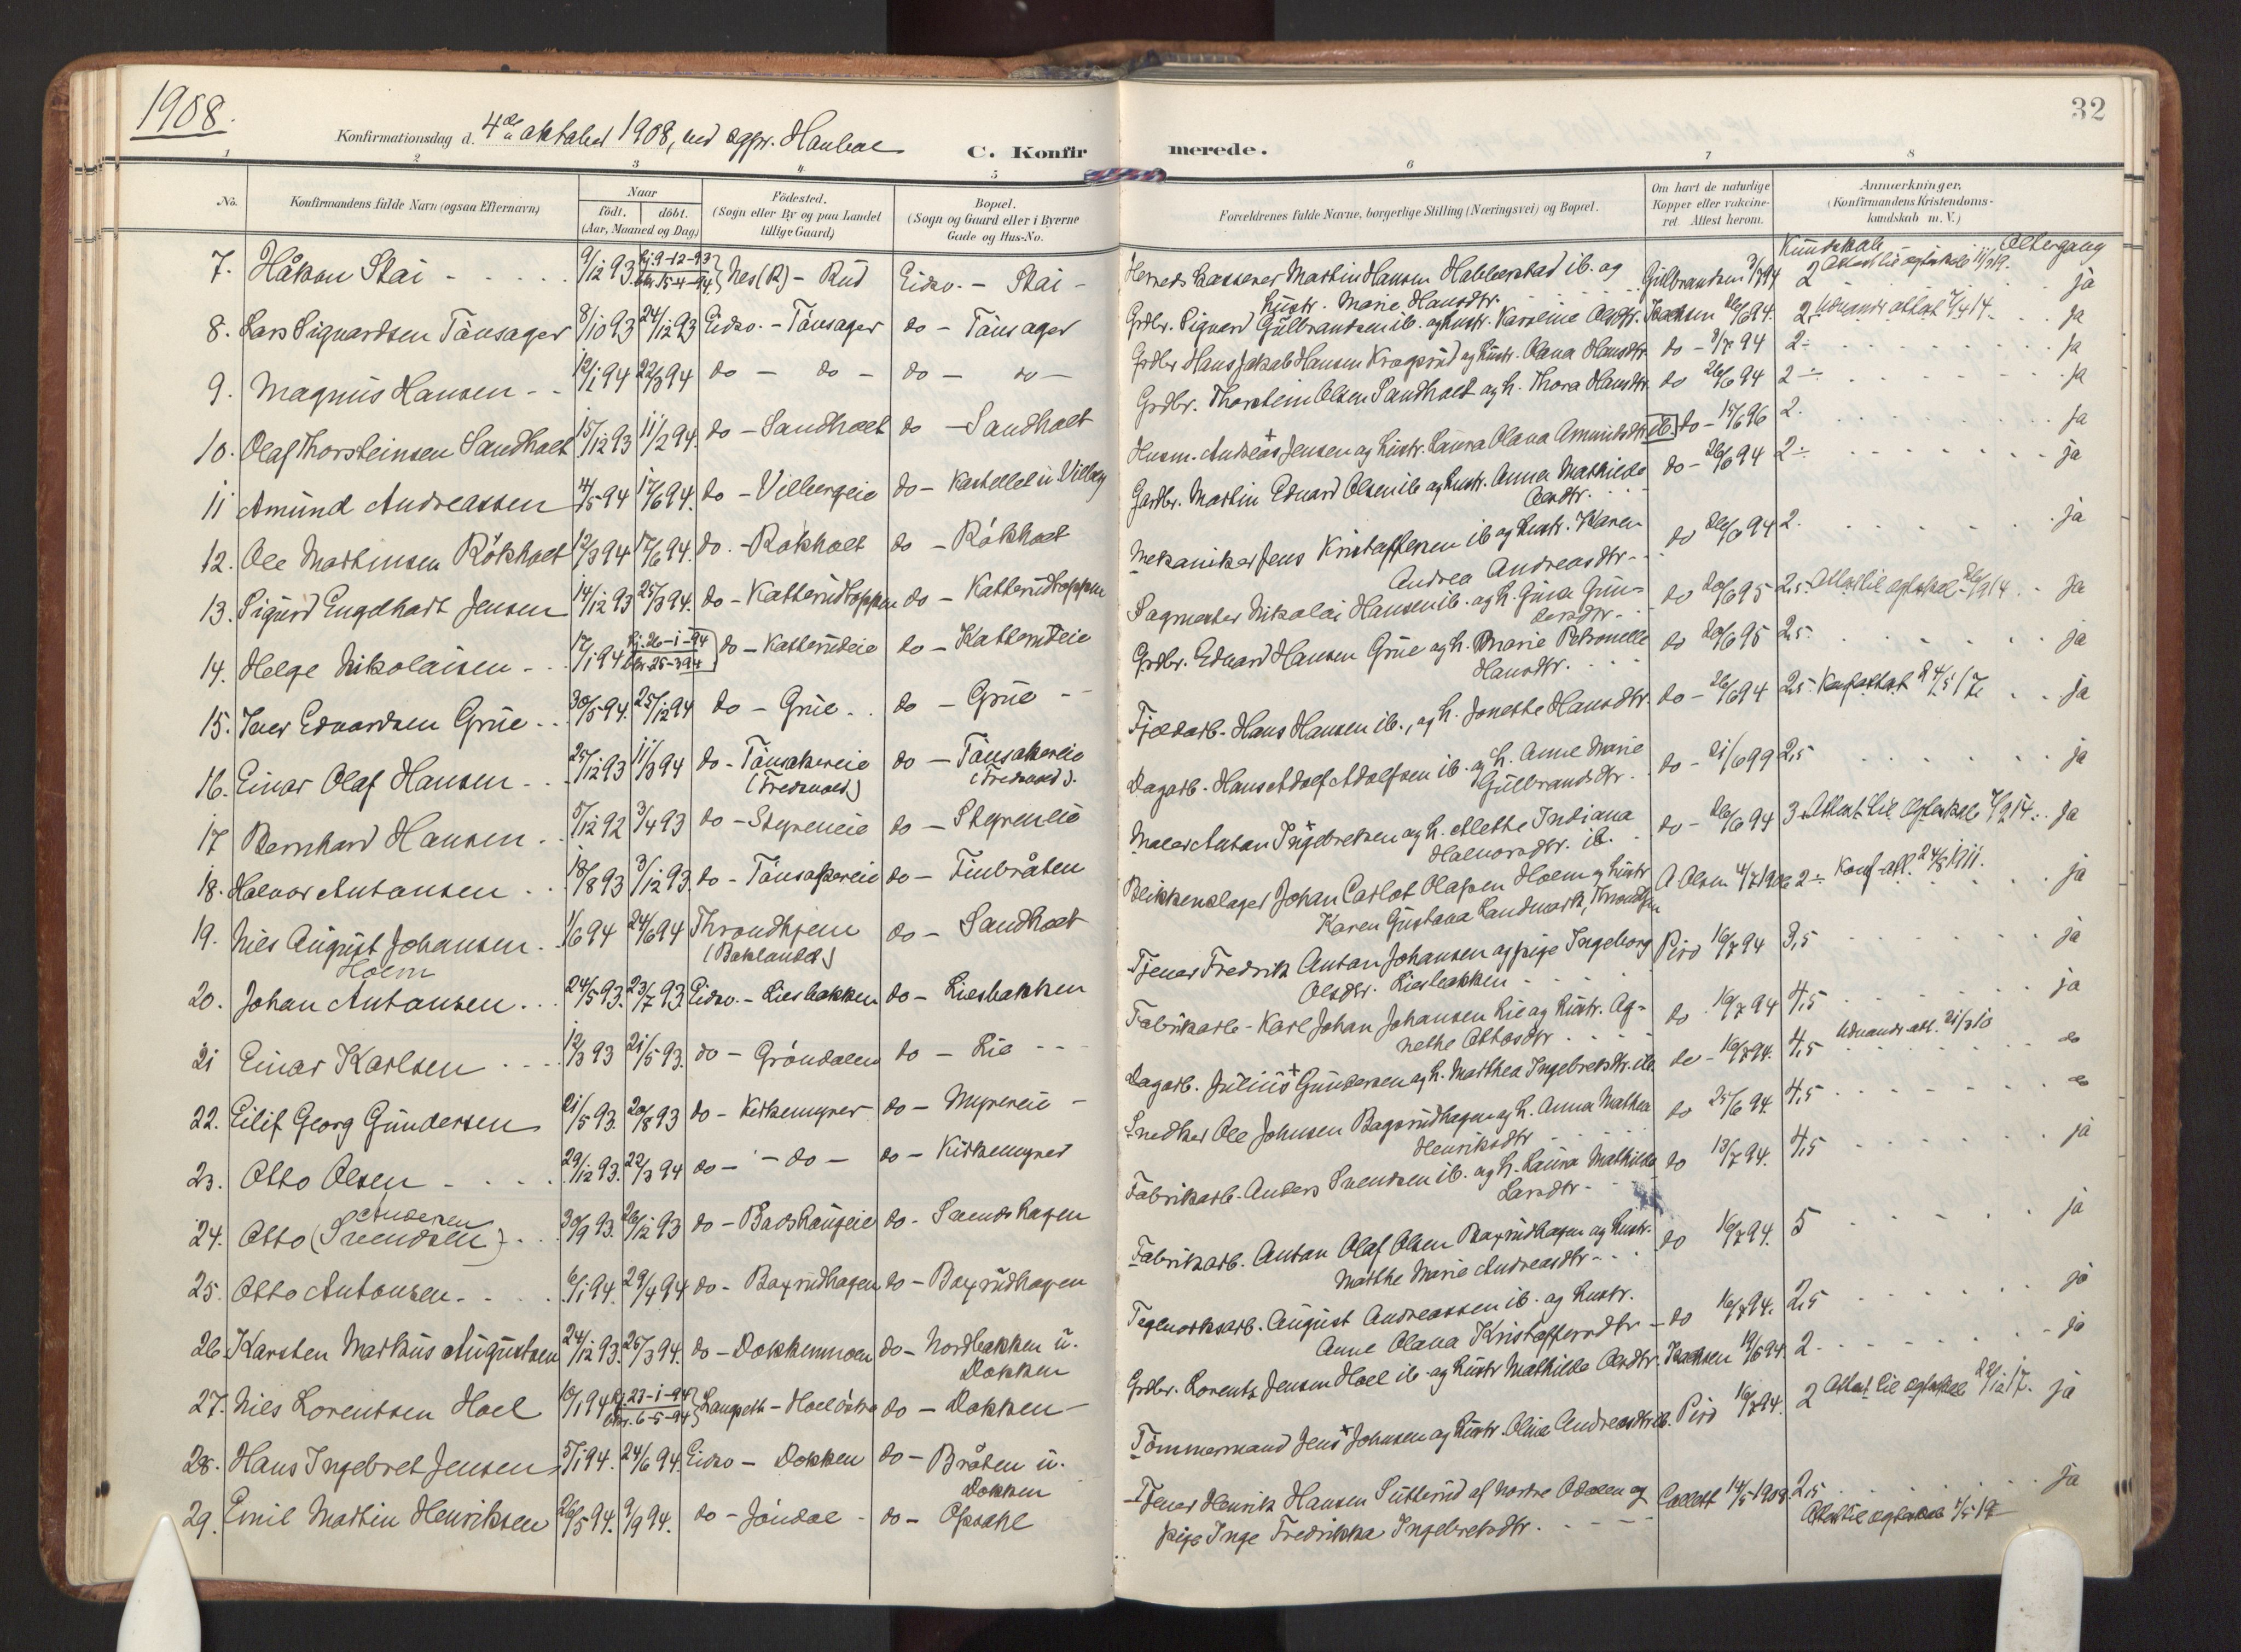 1908.
32
Konfirmationsdag d. 4de oktober 1908, ved sgpr. Hauben
C. Konfirmerede.
1 2 3 4 5 6 7 8
No.
Konfirmandens fulde Navn (ogsaa Efternavn)
Naar
födt. döbt.
(Aar, Maaned og Dag)
Födested.
(Sogn eller By og paa Landet
tillige Gaard)
Bopæl.
(Sogn og Gaard eller i Byerne
Gade og Hus-No.
Forældrenes fulde Navne, borgerlige Stilling (Næringsvei) og Bopæl.
Om havt de naturlige
Kopper eller vakcine-
ret. Attest herom.
Anmærkninger.
(Konfirmandens Kristendoms-
kundskab m. V.)
Kundskab Altergang
7. Håkon Stai - 9/12 93 Hj. 9-12-93 bkr. 15-4-94. Nes (R) - Rud Eidsv. - Stai - Herredskasserer Martin Hansen Habberstad ib. og Gulbrandsen 3/7 94 2 Attest til ægteskab 11/3 19. ja
Hustr. Marie Hansdtr.
8. Lars Siguardsen Tönsager 8/10 93 24/12 93 Eidsv. - Tönsager do - Tönsager Grdbr. Siguard Gulbrandsen ib. og Hustr. Karoline Olsdtr. Isachsen 26/6 94. 2 Udvandr. attest 7/4 14. ja
9. Magnus Hansen - - 12/1 94 22/3 94 do - do - do - do - Grdbr Hans Jakob Hansen Kragsrud og Hustr. Olava Hansdtr. do - 3/7 94 2÷ ja
10. Olaf Thorsteinsen Sandholt 15/12 93 11/2 94. do - Sandholt do - Sandholt Grdbr. Thorstein Olsen Sandholt og h. Thora Hansdtr. do 26/6 94 2÷ ja
11 Amund Andreassen 4/5 94 17/6 94. do - Vilbergeie do - Kastellet u. Vilberg Husm. Andreas + Jensen og Hustr. Laura Olava Amundsdtr ib. do - 15/6 96 2. ja
12. Ole Martinsen Rökholt 12/3 94 17/6 94. do. - Rökholt do - Rökholt Gardbr. Martin Eduard Olsen ib og Hustr. Anna Mathilde do - 26/6 94 2÷ ja
Olsdtr.
13. Sigurd Engelhart Jensen 14/12 93 25/3 94. do - Katterudtoppen do - Katterudtoppen Mekaniker Jens Kristoffersen ib og Hustr. Karen do 26/6 94 2. ja
Andrea Andreasdtr -
14. Helge Nikolaisen - 17/1 94 Hj. 20-1-94 bkr. 25-3 94 do - Katterudeie do - Katterudeie Sagmester Nikolai Hansen ib. og h. Gina Gun- do 20/6 95 2,5. Attest til ægteskab 26/9 14. ja
dersdtr.
15. Iver Eduardsen Grue 30/5 94. 25/12 94 do - Grue do - Grue Grdbr. Eduard Hansen Grue og h. Marie Petronelle do 20/6 95 2,5. ja
Hansdtr.
16. Einar Olaf Hansen 25/12 93 11/3 94 do - Tönsakereie do - Tönsakereie Fjeldarb. Hans Hansen ib., og h. Jonette Hansdtr. do - 26/6 94 2,5. Konf.attest 24/5 17. ja
(Fredsvold) (Fredsvold).
17 Bernhard Hansen 5/12 92 3/4 93 do - Styreneie do - Styreneie Dagarb. Hans Adolf Adolfsen ib. og h. Anne Marie do - 21/6 99 2,5 ja
Gulbrandsdtr.
18. Halvor Antonsen 18/8 93 3/12 93. do - Tönsakereie do - Finbråten Maler Anton + Ingebretsen og h. Mette Indiana do - 26/6 94 3. Attest til ægteskab 7/9 14. ja
Halvorsdtr. ib.
19. Nils August Johansen 1/6 94 24/6 94 Throndhjem do - Sandholt Blikkenslager Johan Carlot Olafsen Holm og Hustr A Olsen 4/7 1906 2÷ Konf. att. 24/8 1911. ja
Holm (Baklandet) Karen Gustava Landmark, Throndhjem
20. Johan Antonsen 24/5 93. 23/7 93 Eidsv. - Liesbakken do - Liesbakken Tjener Fredrik Anton Johansen og pige Ingeborg Piro 16/7 94 3,5 ja
Olsdtr. Liesbakken
21 Einar Karlsen 12/3 93 21/5 93. do - Gröndalen do - Lie - - Fabrikarb. Karl Johan Johansen Lie og Hustr. Ag- do 16/7 94 4,5 ja
nethe Ottosdtr
22. Eilif Georg Gundersen 21/5 93. 20/8 93 do - Kirkemyrer do - Myrereie - Dagarb. Julius + Gundersen og h. Matthea Ingebretsdtr. ib. do - 16/7 94. 4,5 Udvandr. att. 21/3 10 do
23. Otto Olsen - 29/12 93. 22/3 94 do - - do - do - Kirkemyrer Snedker Ole Johnsen Bagsrudhagen og h. Anna Mathea do 25/6 94. 4,5 do
Henriksdtr
24. Otto (Svendsen) Andersen 30/9 93. 26/12 93 do - Badshaugeie do - Svendshagen Fabrikarb. Anders Svendsen ib. og h. Laura Mathilde do 13/7 94. 4,5 ja
Larsdtr -
25. Otto Antonsen 6/1 94. 29/4 94 do - Baxrudhagen do - Baxrudhagen Fabrikarb. Anton Olaf Olsen Baxrudhagen og Hustr. do 16/7 94. 5 ja
Mathe Marie Andreasdtr -
26. Karsten Markus Augustsen 24/12 93. 26/3 94. do - Dokkenmoen do - Nordbakken u. Teglverksarb. August Andreassen ib. og Hustr. do 16/7 94. 2,5 ja
Dokken Anne Olava Kristoffersdtr -
27. Nils Lorentsen Hoel 10/1 94 Hj. 23-1-94 bkr. 6-5-94 Langseth - Hoel östre do - Dokken - Grdbr. Lorents Jensen Hoel ib. og Hustr Mathilde Olsdtr. Isachsen 12/6 94. 2. ja
28. Hans Ingebret Jensen 5/1 94. 24/6 94. Eidsv - Dokken do - Bråten u. Tömmermand Jens + Johnsen og Hustr. Oline Andreasdtr ib. Piro 16/7 94. 2 Attest til ægteskab 22/12 17. ja
Dokken
29. Emil Martin Henriksen 26/5 94. 9/9 94. do - Jöndal - do - Opsahl Tjener Henrik Hansen Sutterud af nordre Odalen og Collett 14/5 1908. 2,5 ja
pige Inge Fredrikke Ingebretsdtr. Attest til ægteskab